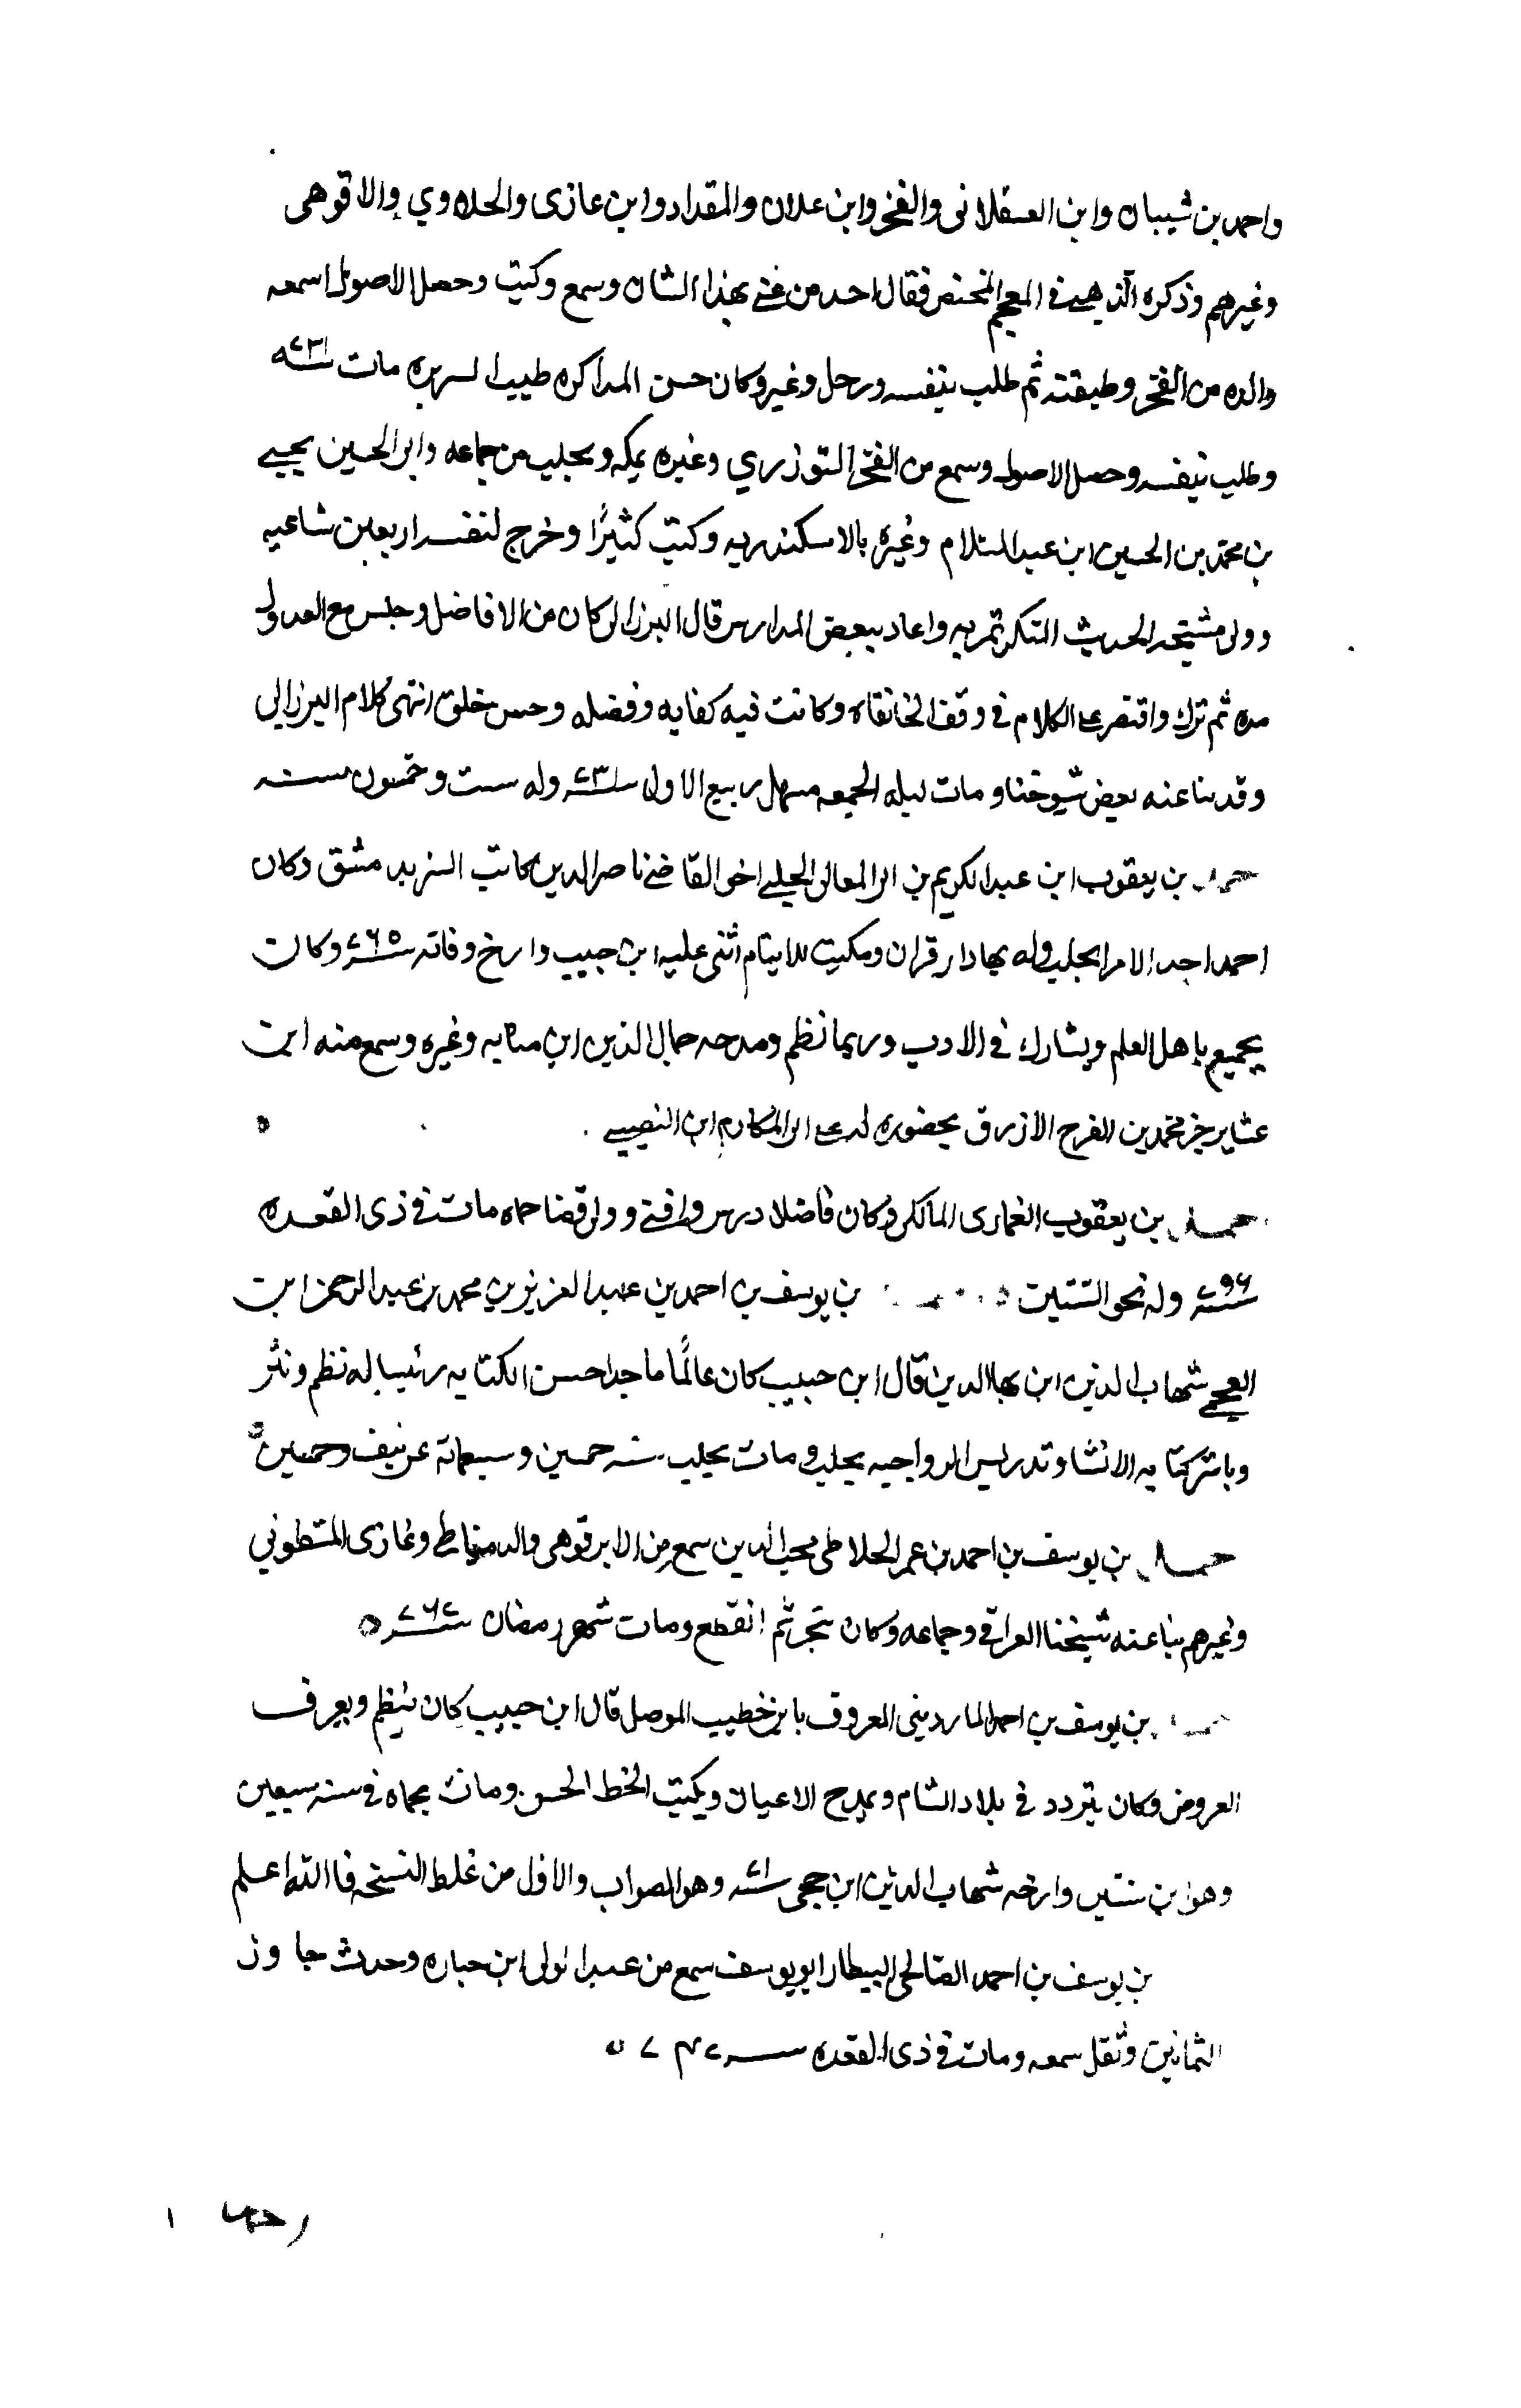 واحمد بن شيبان وابن العسقلانى والفخر وابن علان والمقداد وابن غازى والحلاوي والابرقوهى
وغيرهم وذكره الذهبي في المعجم المختص فقال احد من عنى بهذا الشان وسمع وكتب وحصل الاصول اسمعه
والده من الفخر وطبقته ثم طلب بنفسه ورحل وغيره وكان حسن المذاكره طيب السريره مات سنة ٧٣١
وطلب بنفسه وحصل الاصول وسمع من الفخر التوزري وغيره بمكه وبحلب من جماعه وابى الحسين يحيى
بن محمد بن الحسين ابن عبد السلام وغيره بالاسكندريه وكتب كثيرًا وخرج لنفسه اربعين تساعيه
وولى مشيخه الحديث التنكزيه واعاد ببعض المدارس قال البرزالى كان من الافاضل وجلس مع العدول
مده ثم ترك واقتصر على الكلام في وقف الخانقاه وكانت فيه كفايه وفضله وحسن خلق انتهى كلام البرزالي
وقد ثنا عنه بعض شيوخنا ومات ليله الجمعه مستهل ربيع الاول سنة ٧٣١ وله ست وخمسون سنه
احمد بن يعقوب ابن عبد الكريم بن ابى المعالى الحلبي اخو القاضي ناصر الدين كاتب السر بدمشق وكان
احمد احد الامرا بحلب وله بها دار قران ومكتب للايتام اثنى عليه ابن حبيب وارخ وفاته سنة ٧٦٥ وكان
يجتمع باهل العلم ويشارك في الادب وربما نظم ومدحه جمال الدين ابن نباته وغيره وسمع منه ابن
عشاير جزء محمد بن الفرج الازرق بحضوره له على ابى المكارم ابن النصيبي
احمد بن يعقوب الغمارى المالكى وكان فاضلا درس وافتى وولى قضا حماه مات في ذى القعده
سنة ٧٩٦ وله نحو الستين بن يوسف بن احمد بن عبد العزيز بن محمد بن عبد الرحمن ابن
العجمي شهاب الدين ابن بهاالدين قال ابن حبيب كان عالمًا ماجدا حسن الكتابه رئيسا له نظم ونثر
وباشر كتابه الانشا وتدريس الرواحيه بحلب ومات بحلب سنه خمسين وسبعمائة عن نيف وخمسين
احمد بن يوسف بن احمد بن عمر الخلاطى محب الدين سمع من الابرقوهى والدمياطي وغازى المشطوبي
وغيرهم ثنا عنه شيخنا العراقي وجماعه وكان يتجر ثم انقطع ومات شهر رمضان سنة ٧٦٢
احمد بن يوسف بن احمد الماردينى المعروف بابن خطيب الموصل قال ابن حبيب كان ينظم ويعرف
العروض وكان يتردد في بلاد الشام ويمدح الاعيان ويكتب الخط الحسن ومات بحماه في سنه سبعين
وهو ابن ستين وارخه شهاب الدين ابن حجى سنة ٧٧١ وهو الصواب والاول من غلط النسخه فاالله اعلم
بن يوسف بن احمد الصالحى البيطار ابو يوسف سمع من عبد الولى ابن جباره وحدث جاوز
الثمانين وثقل سمعه ومات في ذى القعده